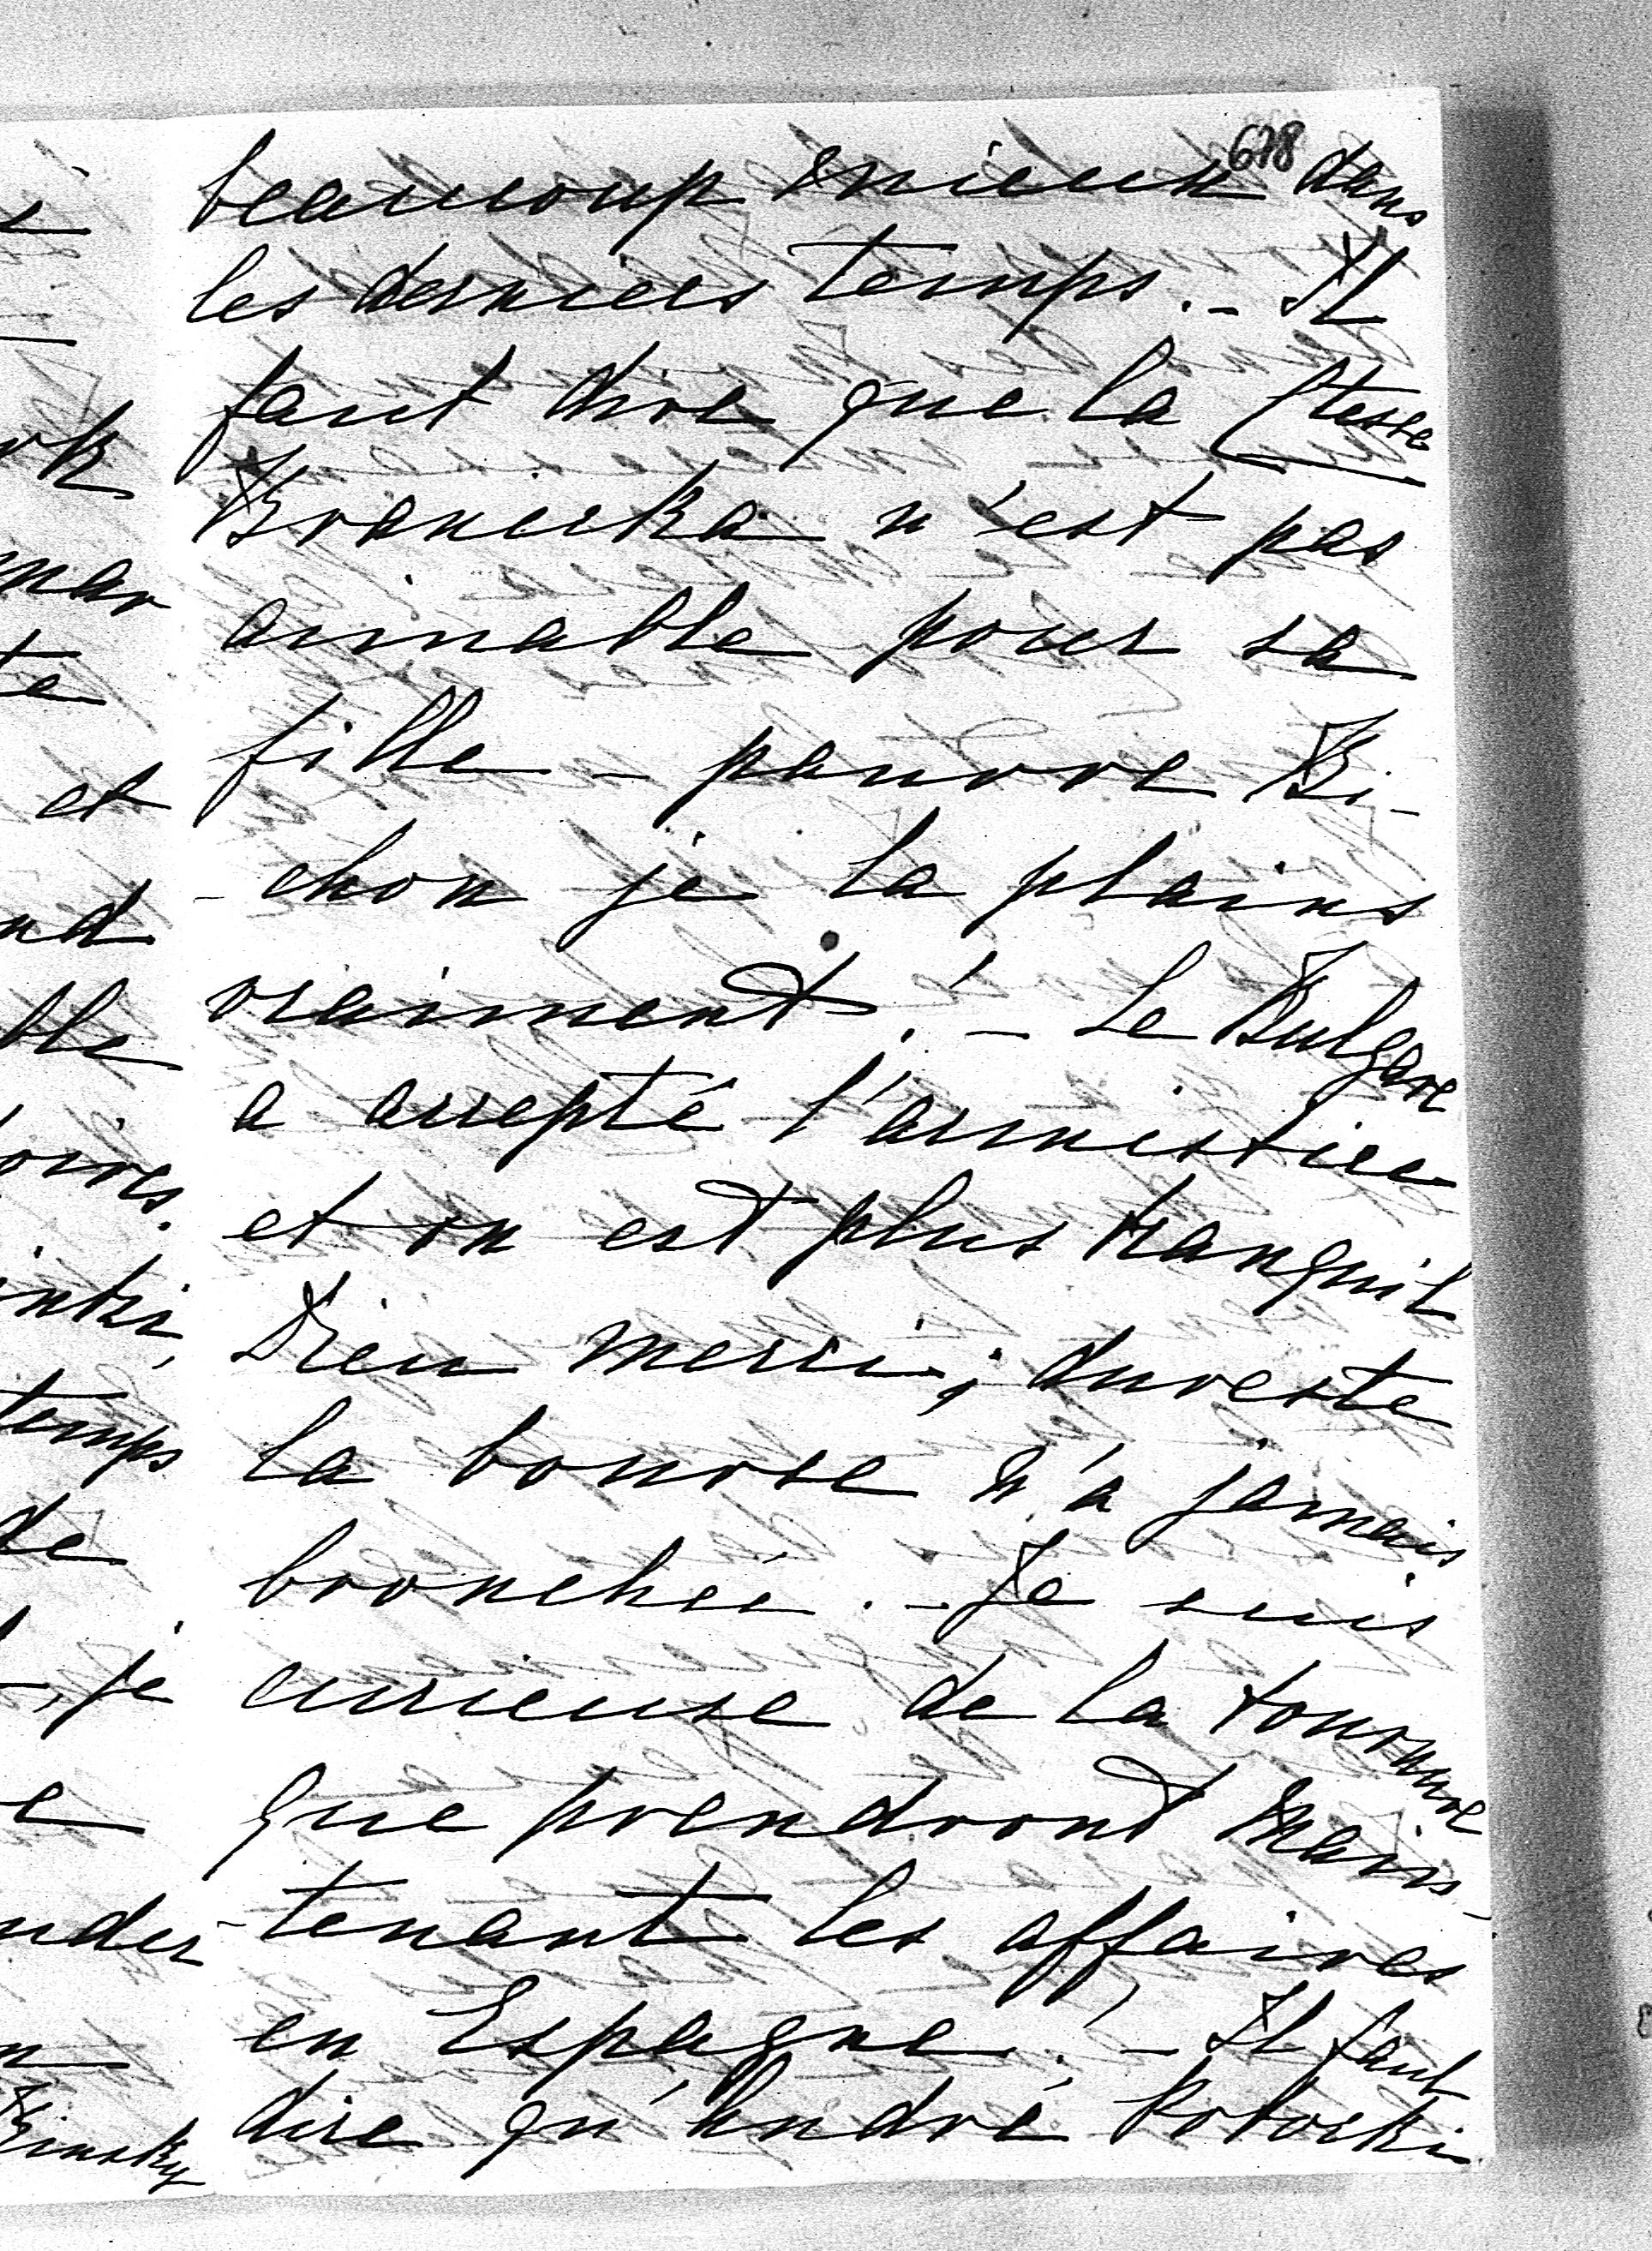 678
beaucoup mieux dans
les derniers temps. - Il
faut dire que la Ctesse
Branicka n'est pas
aimable pour sa
fille - pauvre Bi-
-chon je la plains
vraiment! - Le Bulgare
a accepté l'armistice
et on est plus tranquil
Dieu merci; dureste
la bourse n'a jamais
bronchée. - Je suis
curieuse de la tournure
que prendront main-
-tenant les affaires
en Espagne! - Il faut
dire qu'André Potocki